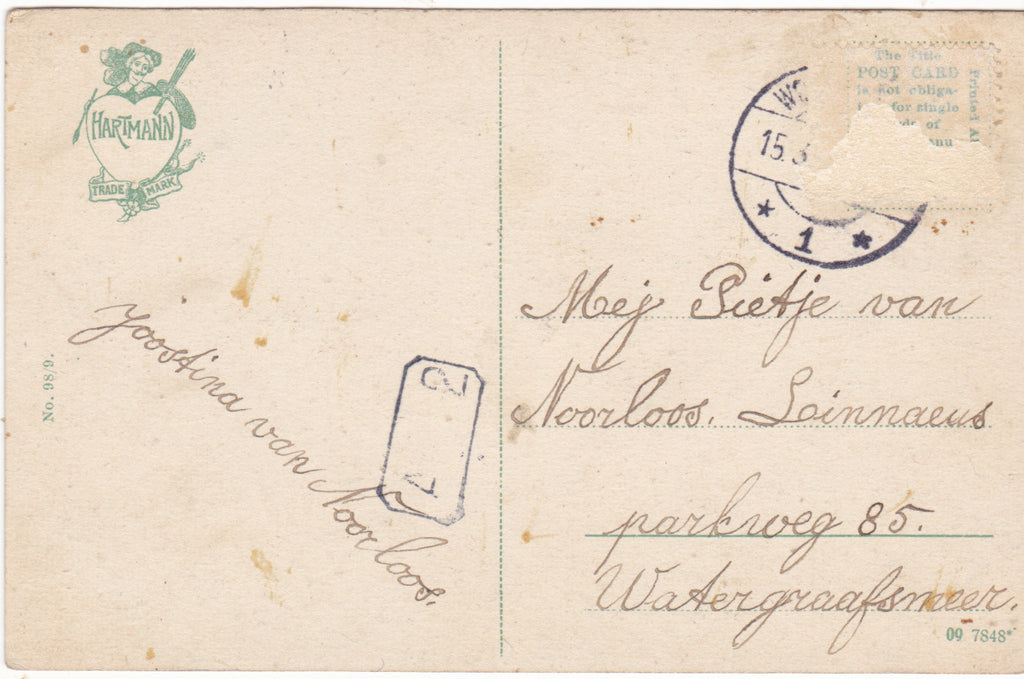 HARTMANN
TRADE MARK
No. 98/9.
Joostina van Noorloos.
The Title
POST CARD
is not obliga-
for single
of
Printed
15.3
1
Mej Pietje van
Noorloos. Linnaeus
parkweg 85.
Watergraafsmeer.
09 7848*